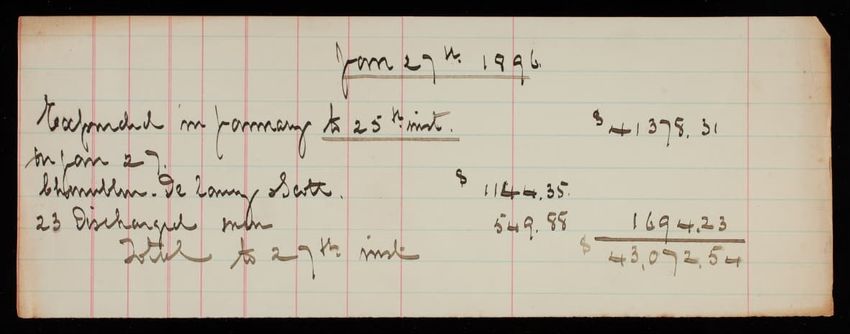 Jan 27th. 1896.
Expended in January to 25th inst. $41378.31
On Jan 27.
Chamblin. De Lancey Scott. $1144.35.
23 Discharged men 549.88 1694.23
Total to 27th inst $43,072.54